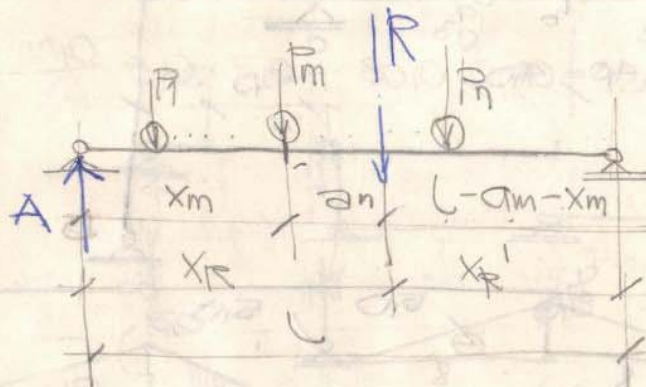 R
P1 Pm Pn
A
xm an l-am-xm
xR xR'
l